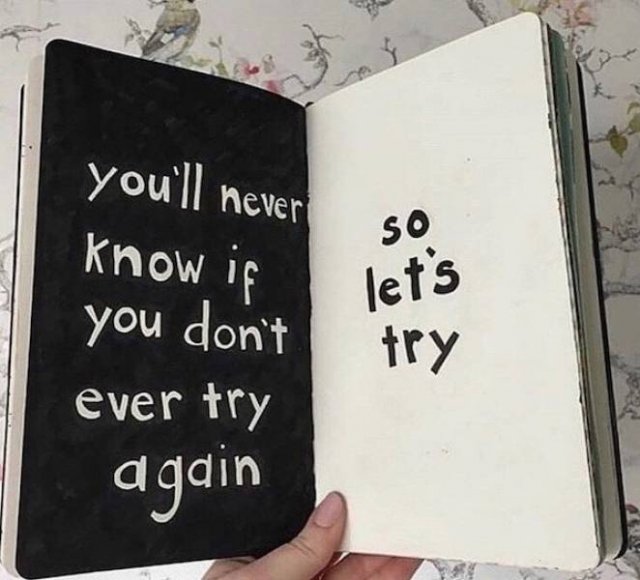 you'll never
know if
you don't
ever try
again
so
let's
try